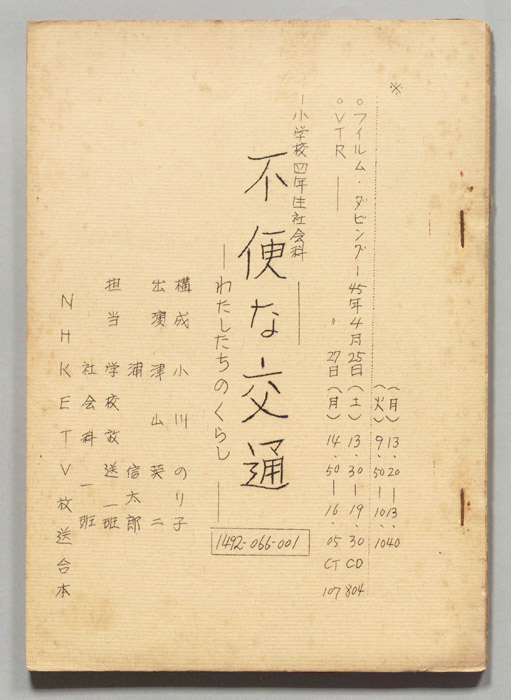 ※
(月) 13.20—13.40
(火) 9.50—10.10
○フィルム・ダビング— 45年4月25日(土) 13.30—19.30 CD 804
○VTR —— 〃 27日(月) 14.50—16.05 CT 107
—小学校四年生社会科——
不便な交通
—わたしたちのくらし——
1492-066-001
構成 小川 のり子
出演 津山 英二
浦 信太郎
担当 学校放送 一班
社会科 一班
NHK ETV放送台本